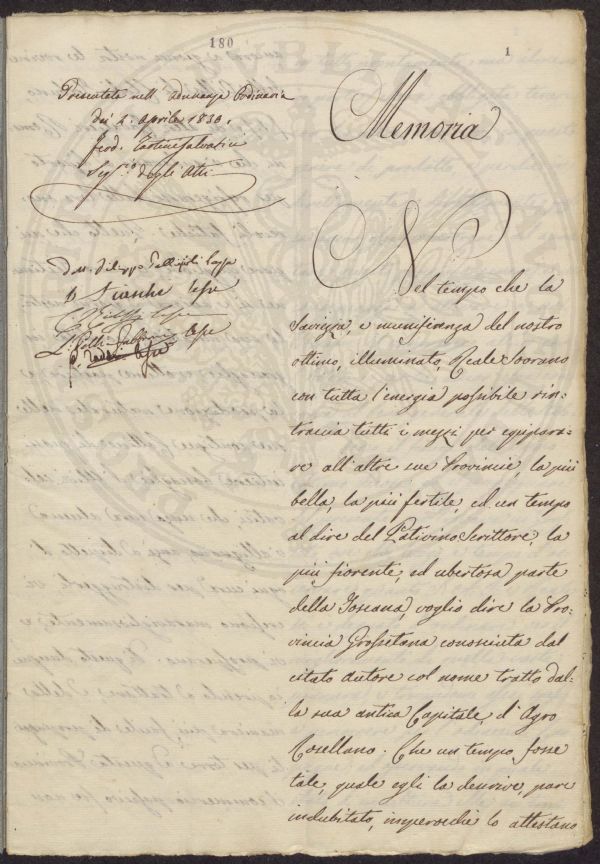 180
1
Presentata nell' Adunanza Ordinaria
dei 2. Aprile 1830.
Ferd. Tartini Salvatici
Seg.rio degli Atti
Memoria
Nel tempo che la
Saviezza, e munificenza del nostro
ottimo, illuminato, Reale Sovrano
con tutta l'energia possibile rin-
traccia tutti i mezzi per equipara-
re all'altre sue Provincie, la più
bella, la più fertile, ed un tempo
al dire del Pativino Scrittore, la
più fiorente, ed ubertosa parte
della Toscana, voglio dire la Pro-
vincia Grossetana conosciuta dal
citato Autore col nome tratto dal-
la sua antica Capitale, d'Agro
Rosellano. Che un tempo fosse
tale, quale egli la descrive, pare
indubitato, imperocchè lo attestano